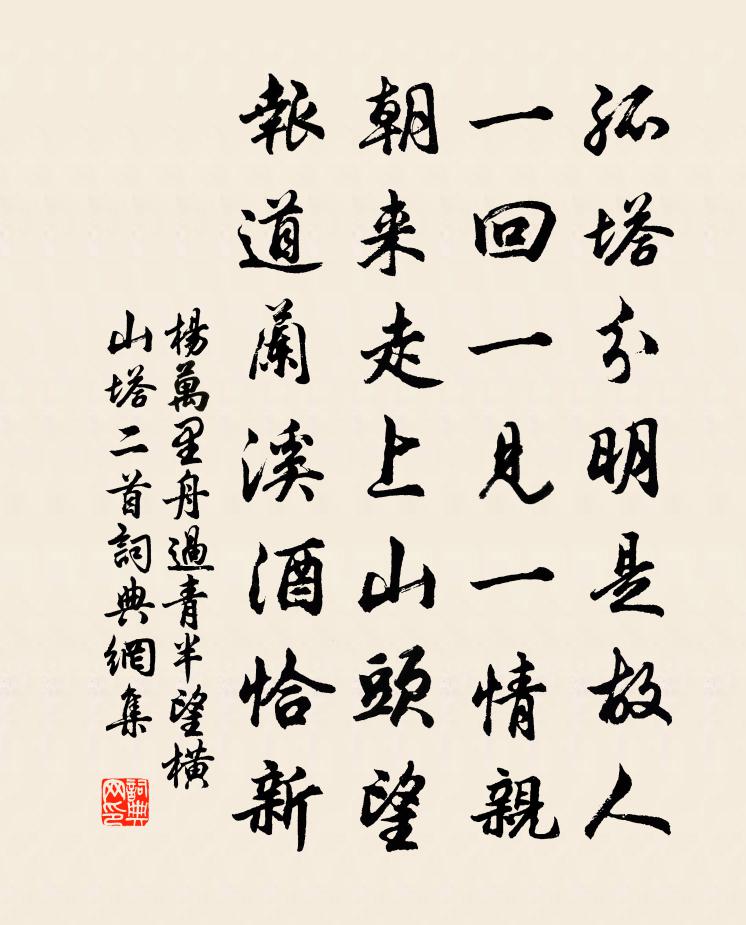 孤塔分明是故人
一回一見一情親
朝来走上山頭望
報道蘭溪酒恰新
楊萬里舟過青半望橫
山塔二首詞典網集
詞典網印